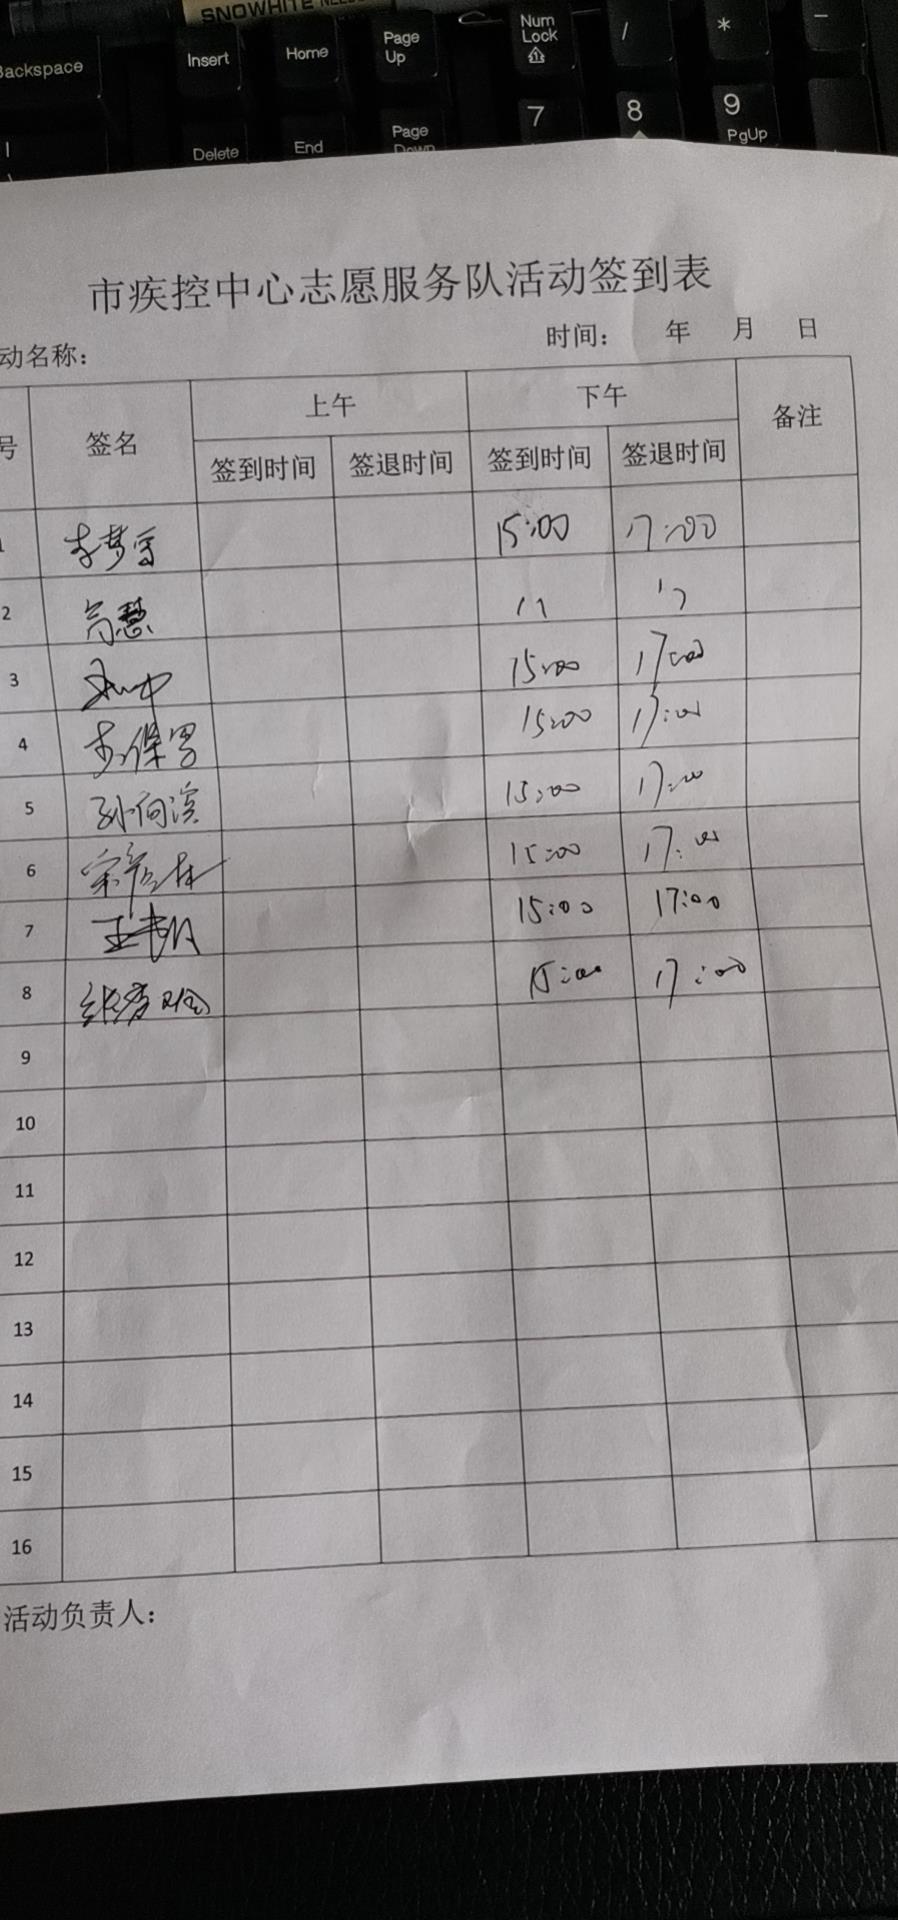 SNOWHITE
Backspace Insert Home Page Up Num Lock / * -
Delete End Page Down 7 8 9 PgUp
市疾控中心志愿服务队活动签到表
动名称: 时间: 年 月 日
号 签名 上午 下午 备注
签到时间 签退时间 签到时间 签退时间
1 李梦雪 15:00 17:00
2 高慧 11 11
3 15:00 17:00
4 李保罗 15:00 17:00
5 孙向滨 15:00 17:00
6 15:00 17:00
7 15:00 17:00
8 15:00 17:00
9
10
11
12
13
14
15
16
活动负责人: